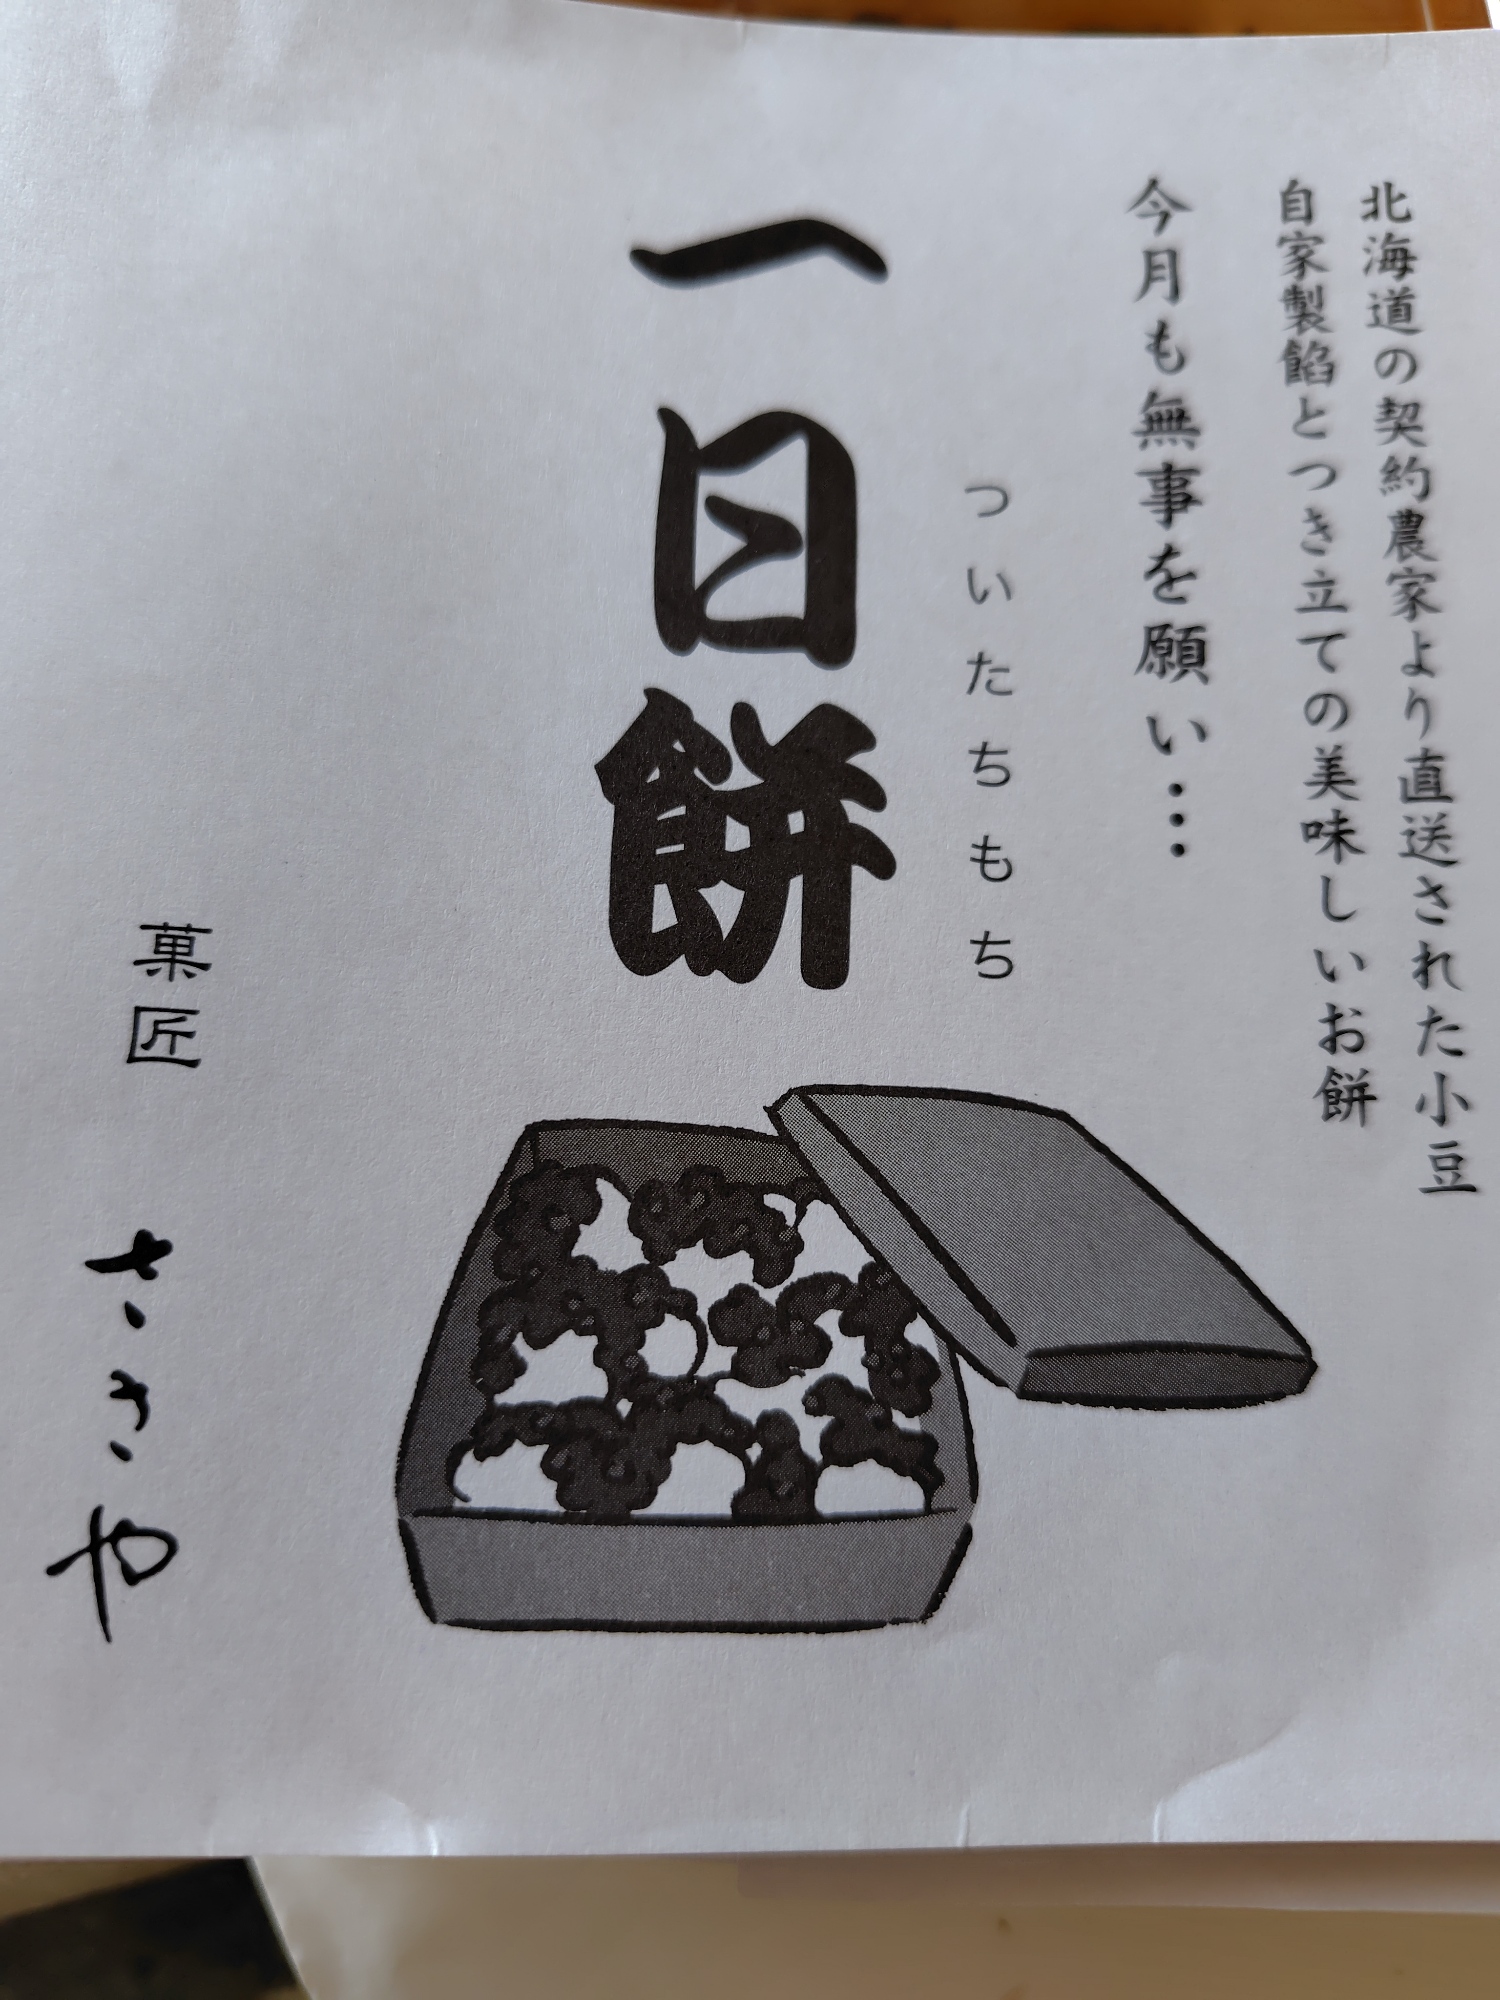 北海道の契約農家より直送された小豆
自家製餡とつき立ての美味しいお餅
今月も無事を願い…
ついたちもち
一日餅
菓匠 さゝや